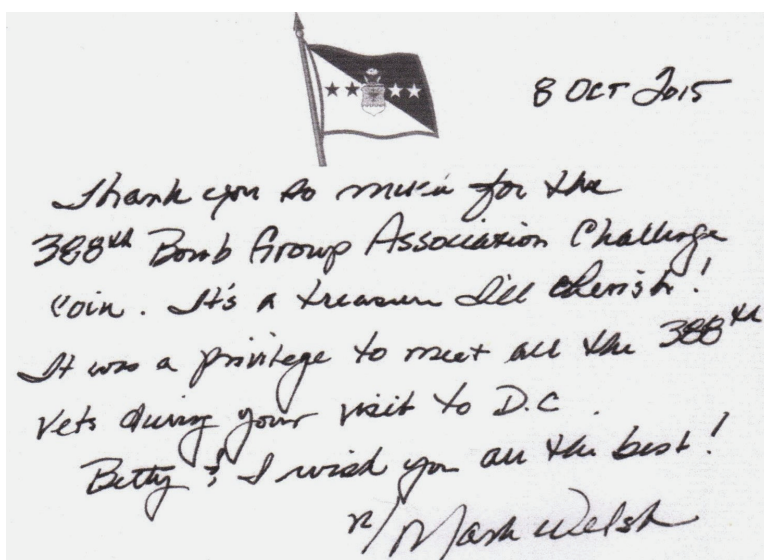 8 OCT 2015
Thank you so much for the
388th Bomb Group Association Challenge
coin. It's a treasure I'll cherish!
It was a privilege to meet all the 388th
vets during your visit to D.C.
Betty & I wish you all the best!
r/Mark Welsh